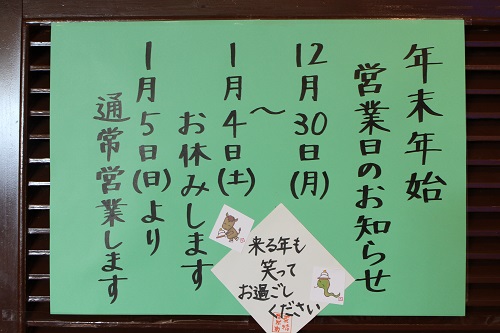 年末年始
営業日のお知らせ
12月30日(月)
〜
1月4日(土)
お休みします
1月5日(日)より
通常営業します
来る年も
笑って
お過ごし
ください